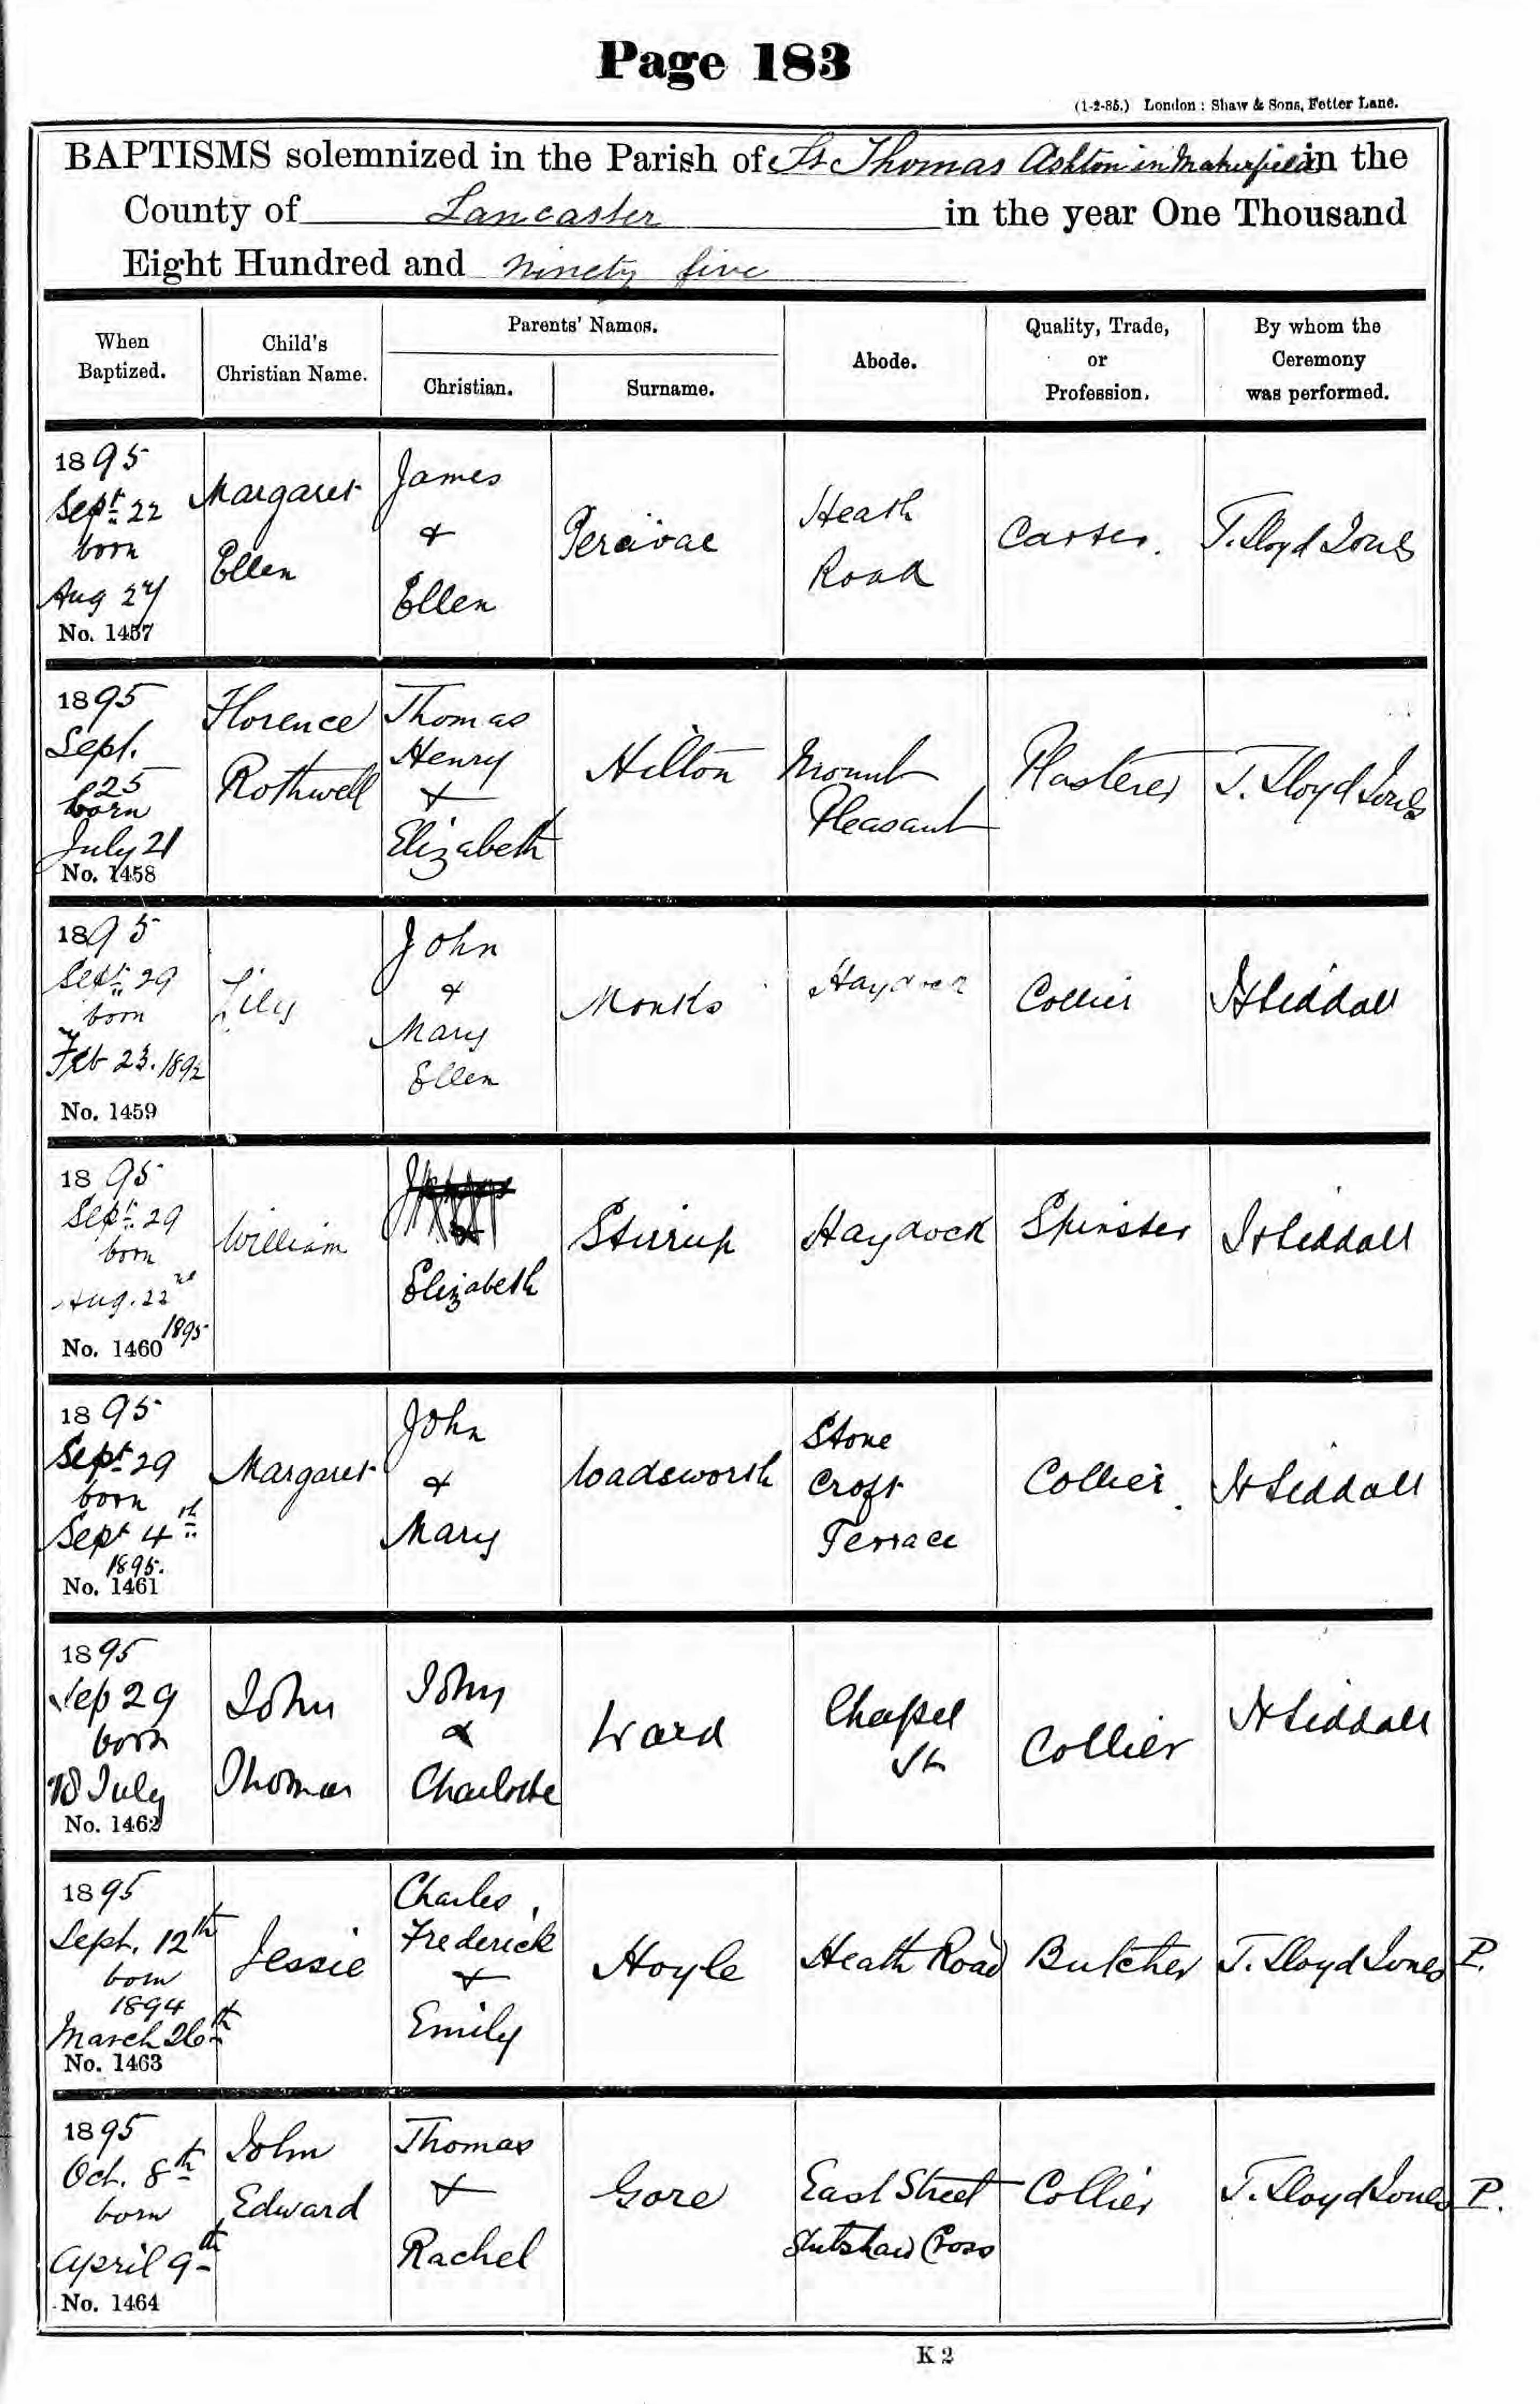 Page 183
(1-2-85.) London: Shaw & Sons, Fetter Lane.
BAPTISMS solemnized in the Parish of St Thomas Ashton in Makerfield in the
County of Lancaster in the year One Thousand
Eight Hundred and ninety five
When Baptized.
Child's Christian Name.
Parents' Names.
Christian.
Surname.
Abode.
Quality, Trade, or Profession.
By whom the Ceremony was performed.
1895
Sept. 22
born
Aug 27
No. 1457
Margaret
Ellen
James
&
Ellen
Percival
Heath
Road
Carter.
T. Lloyd Jones
1895
Sept.
25
born
July 21
No. 1458
Florence
Rothwell
Thomas
Henry
&
Elizabeth
Hilton
Mount
Pleasant
Plasterer
T. Lloyd Jones
1895
Sept. 29
born
Feb 23. 1892
No. 1459
Lily
John
&
Mary
Ellen
Monks
Haydock
Collier
H Siddall
1895
Sept. 29
born
Aug. 22nd
1895
No. 1460
William
Elizabeth
Stirrup
Haydock
Spinster
H Siddall
1895
Sept 29
born
Sept 4th
1895.
No. 1461
Margaret
John
&
Mary
Wadsworth
Stone
Croft
Terrace
Collier.
H Siddall
1895
Sep 29
born
18 July
No. 1462
John
Thomas
John
&
Charlotte
Ward
Chapel
St
Collier
H Siddall
1895
Sept. 12th
born
1894
March 26th
No. 1463
Jessie
Charles
Frederick
&
Emily
Hoyle
Heath Road
Butcher
T. Lloyd Jones P.
1895
Oct. 8th
born
April 9th
No. 1464
John
Edward
Thomas
&
Rachel
Gore
East Street
Stubshaw Cross
Collier
T. Lloyd Jones P.
K 2